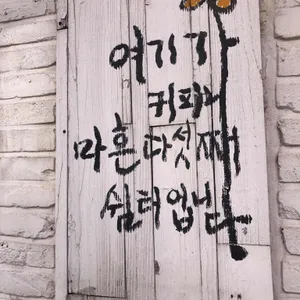 여기가
커피나
마흔다섯째
쉼터입니다